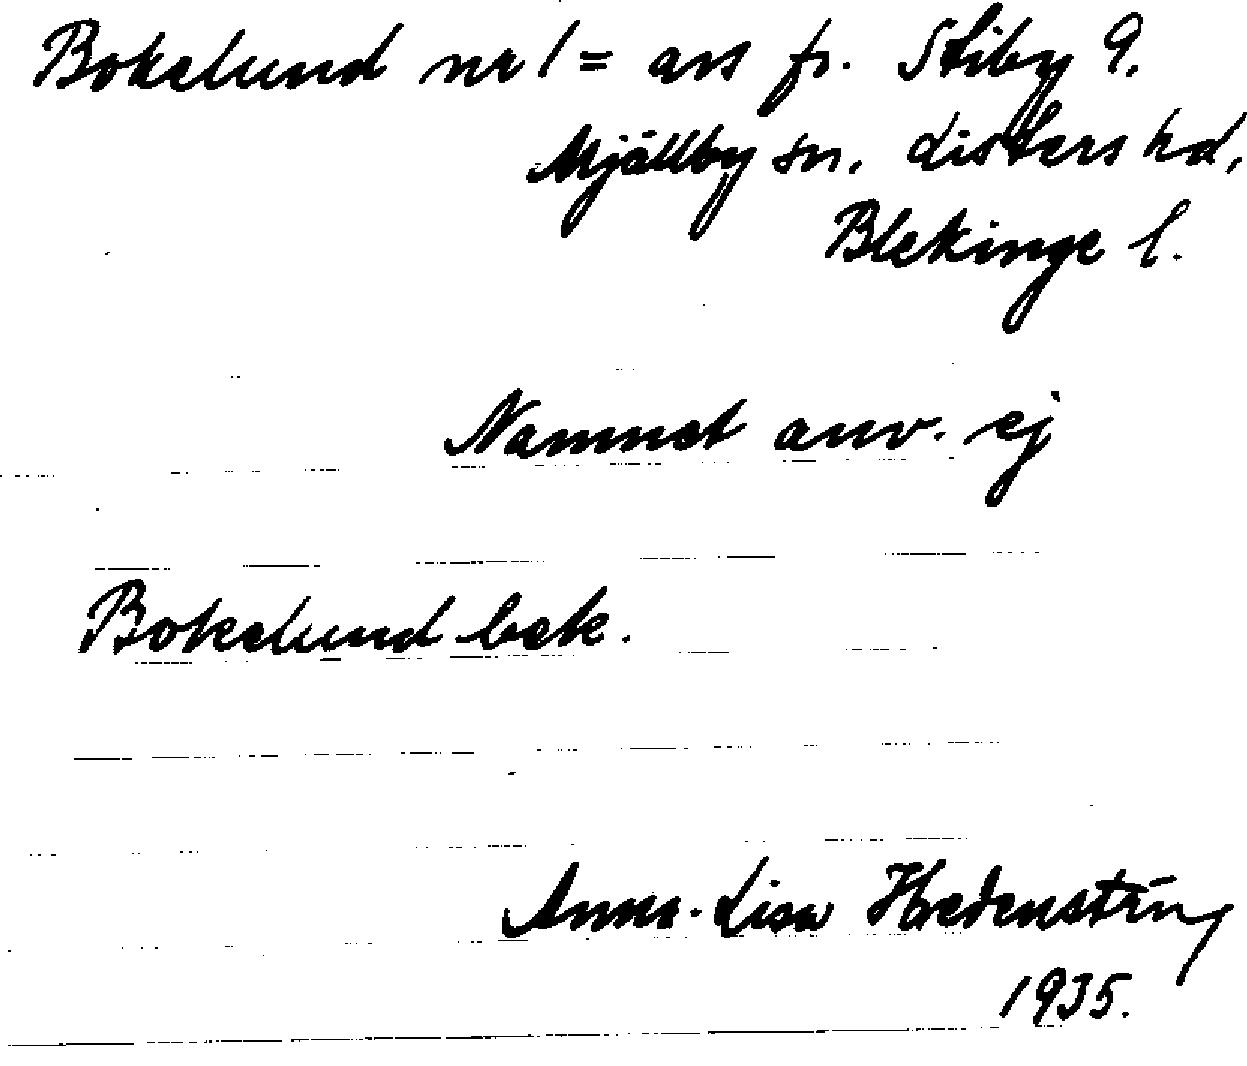 Bokelund nr 1 = avs fr. Stiby 9.
Mjällby sn, Listers hd,
Blekinge l.
Namnet anv. ej
Bokelund bek.
Anna-Lisa
1935.